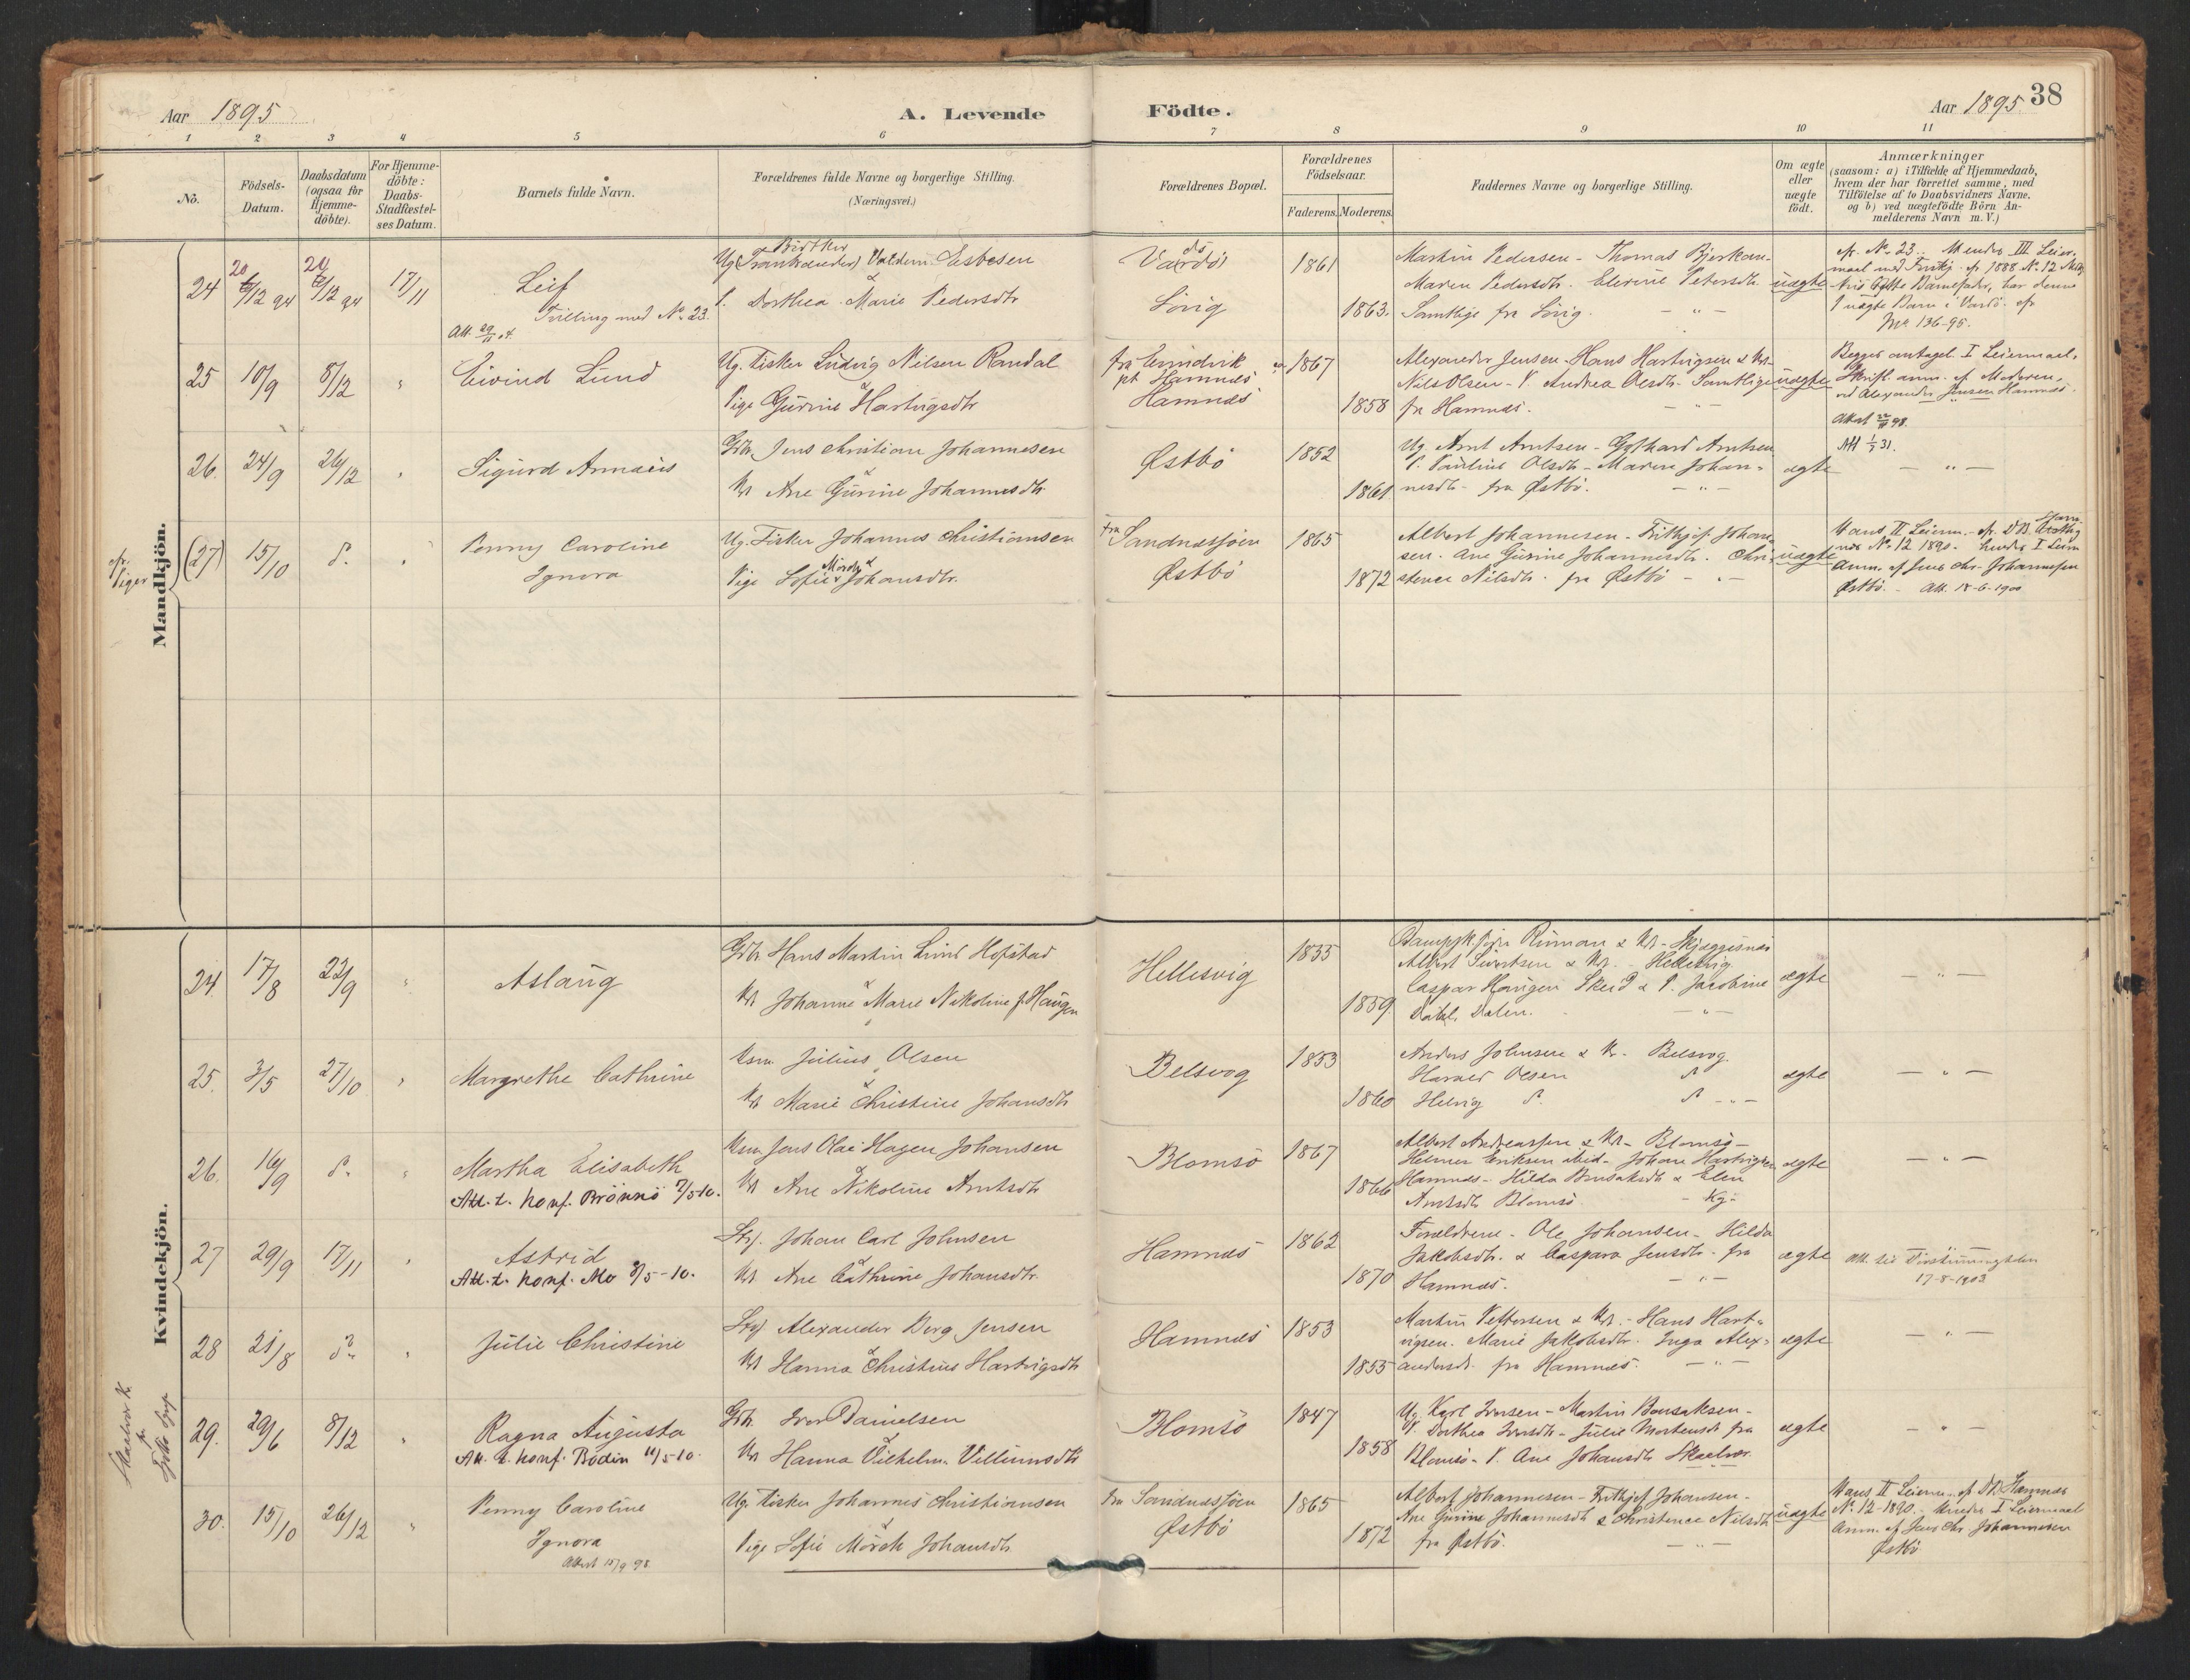 Aar 1895
A. Levende
Födte.
Aar 1895
38
1 2 3 4 5 6 7 8 9 10 11
No.
Födsels-
Datum.
Daabsdatum
(ogsaa for
Hjemme-
döbte).
For Hjemme-
döbte:
Daabs-
Stadfæstel-
ses Datum.
Barnets fulde Navn.
Forældrenes fulde Navne og borgerlige Stilling.
(Næringsvei.)
Forældrenes Bopæl.
Forældrenes
Födselsaar.
Faderens. Moderens.
Faddernes Navne og borgerlige Stilling.
Om ægte
eller
uægte
födt.
Anmærkninger
(saasom: a) i Tilfælde af Hjemmedaab,
hvem der har forrettet samme, med
Tilföielse af to Daabsvidners Navne,
og b) ved uægtefödte Börn An-
melderens Navn m. V.)
Mandkjön.
24
17/11
Leif
Tvilling med No. 23.
Ug. Valdem. Esbesen
P. Dorthea Marie Pedersdtr
Vardö
Sörig
1861
1863.
Martin Pedersen - Thomas Bjerkan-
Maren Pedersdtr. Elerine Petersdtr.
Samtlige fra Sörig. - " -
uægte
cfr. No. 23.
1 uægte Barn i Vardö. cfr
136-95.
25
10/9
8/12
"
Eivind Lund
Ug. Fisker Ludvig Nilsen Randal
Pige Gurine Hartvigsdtr
pt. Hamnæs
Hamnæs
1867
1858
Alexander Jensen - Hans Hartvigsen & Kr.
Nils Olsen - P. Andrea Olsdtr. Samtlige
fra Hamnæs. - " -
uægte
Begges antagel. I Leiermaal.
Skriftl. anm. af Moderen
ved Alexander Jensen Hamnæs.
26.
24/9
26/12
"
Sigurd Armæus
Gbr. Jens Christian Johannesen
K. Ane Gurine Johannesdtr
Østbö
1852
1861
Ug. Arnt Arntsen - Gothard Arntsen
P. Pauline Olsdtr - Maren Johan-
nesdtr - fra Østbö. - " -
ægte
- " -
cfr.
Piger
(27)
15/10
d.
"
Penny Caroline
Ignora
Ug. Fisker Johannes Christiansen
Pige Sofie Mörch Johansdtr.
fra Sandnessjöen
Østbö
1865
1872
Albert Johannesen - Frithjof Johan-
sen. Ane Gurine Johannesdtr. Chri-
stence Nilsdtr. fra Østbö - " -
uægte
Hans II Leierm. - cfr. D.B.
No. 12 1890. Hendes I Leierm
Anm. af Jens Chr. Johannesen
Østbö. - Att. 18-6-1900
Kvindekjön.
24.
17/8
22/9
"
Aslaug
Gbr. Hans Martin Lind Hofstad
K. Johanne Marie Nikoline f. Haugen
Hellesvig
1835
1859
Albert Sivertsen & Kr. - Hellesvig.
Caspar Haugen Skei & P. Jacobine
Dalen. - " -
ægte
- " -
25.
3/5
27/10
"
Margrethe Cathrine
Husm. Julius Olsen
K. Marie Christine Johansdtr
Belsvog
1853
1860
Anders Johnsen & K. - Belsvog.
Harald Olsen d.
Helvig d. d. - " -
ægte
- " -
26.
16/9
d.
"
Martha Elisabeth
Att. t. Konf. Brönnö 7/5-10.
Husm. Jens Olai Hagen Johansen
K. Ane Nikoline Arntsdtr
Blomsö
1867
1866
Albert Andreassen & Kr. - Blomsö -
Helmer Eriksen ibid - Johan Hartvigsen
Hamnæs - Hilda Bensaksdtr & Elen
Arntsdtr Blomsö.
ægte
- " -
27
29/9
17/11
"
Astrid
Att. t. Konf. Mo 8/5-10.
Johan Carl Johnsen
K. Ane Cathrine Johansdtr.
Hamnæs
1862
1870
Forældrene - Ole Johansen - Hilda
Jakobsdtr. & Caspara Jensdtr. fra
Hamnæs. - " -
ægte
17-8-1903
28
21/8
do
"
Julie Christine
Alexander Berg Jensen
K. Hanna Christine Hartvigsdtr
Hamnæs
1853
1855
Martin Pettersen & Kr. - Hans Hart-
vigsen. Marie Jakobsdtr. Inga Alex-
andersdr. fra Hamnæs. - " -
ægte
- " -
29.
29/6
8/12
"
Ragna Augusta
Att. t. Konf. Bodin 11/5-10.
Gbr. Iver Danielsen
K. Hanna Vilhelm. Villumsdtr
Blomsö
1847
1858
Ug. Karl Iversen - Martin Bensaksen -
P. Dorthea Iversdtr - Julie Mortensdtr fra
Blomsö - P. Ane Johansdtr Skaalvær.
ægte
- " -
30.
15/10
26/12
"
Penny Caroline
Ignora
Attest 15/9 98
Ug. Fisker Johannes Christiansen
Pige Sofie Mörch Johansdtr.
fra Sandnessjöen
Østbö
1865
1872
Albert Johannesen - Frithjof Johansen -
Ane Gurine Johannesdtr & Christence Nilsdtr
fra Østbö. - " -
uægte
Hans II Leierm. cfr. D.B. Hamnæs
No. 12-1890. Hendes I Leiermaal
Anm. af Jens Chr. Johannesen
Østbö